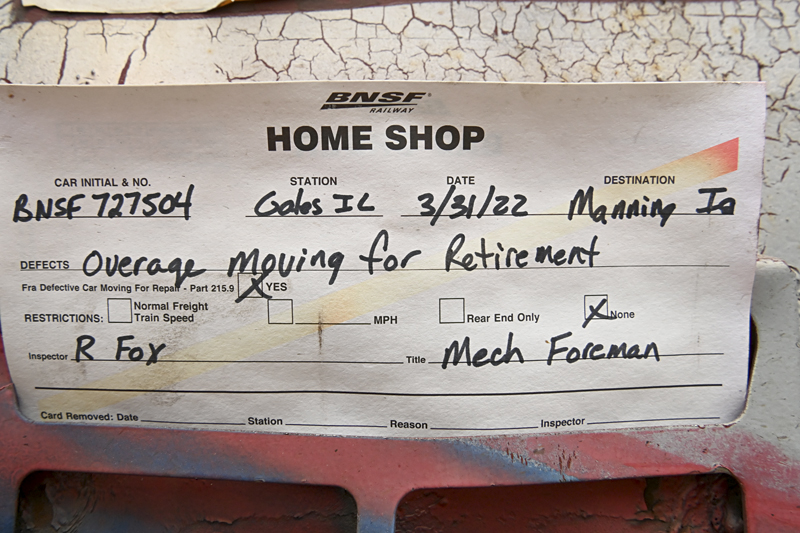 BNSF
RAILWAY
HOME SHOP
CAR INITIAL & NO. STATION DATE DESTINATION
BNSF 727504 Gales IL 3/31/22 Manning Ia
DEFECTS Overage Moving for Retirement
Fra Defective Car Moving For Repair - Part 215.9 X YES
RESTRICTIONS: Normal Freight Train Speed MPH Rear End Only X None
Inspector R Fox Title Mech Foreman
Card Removed: Date Station Reason Inspector